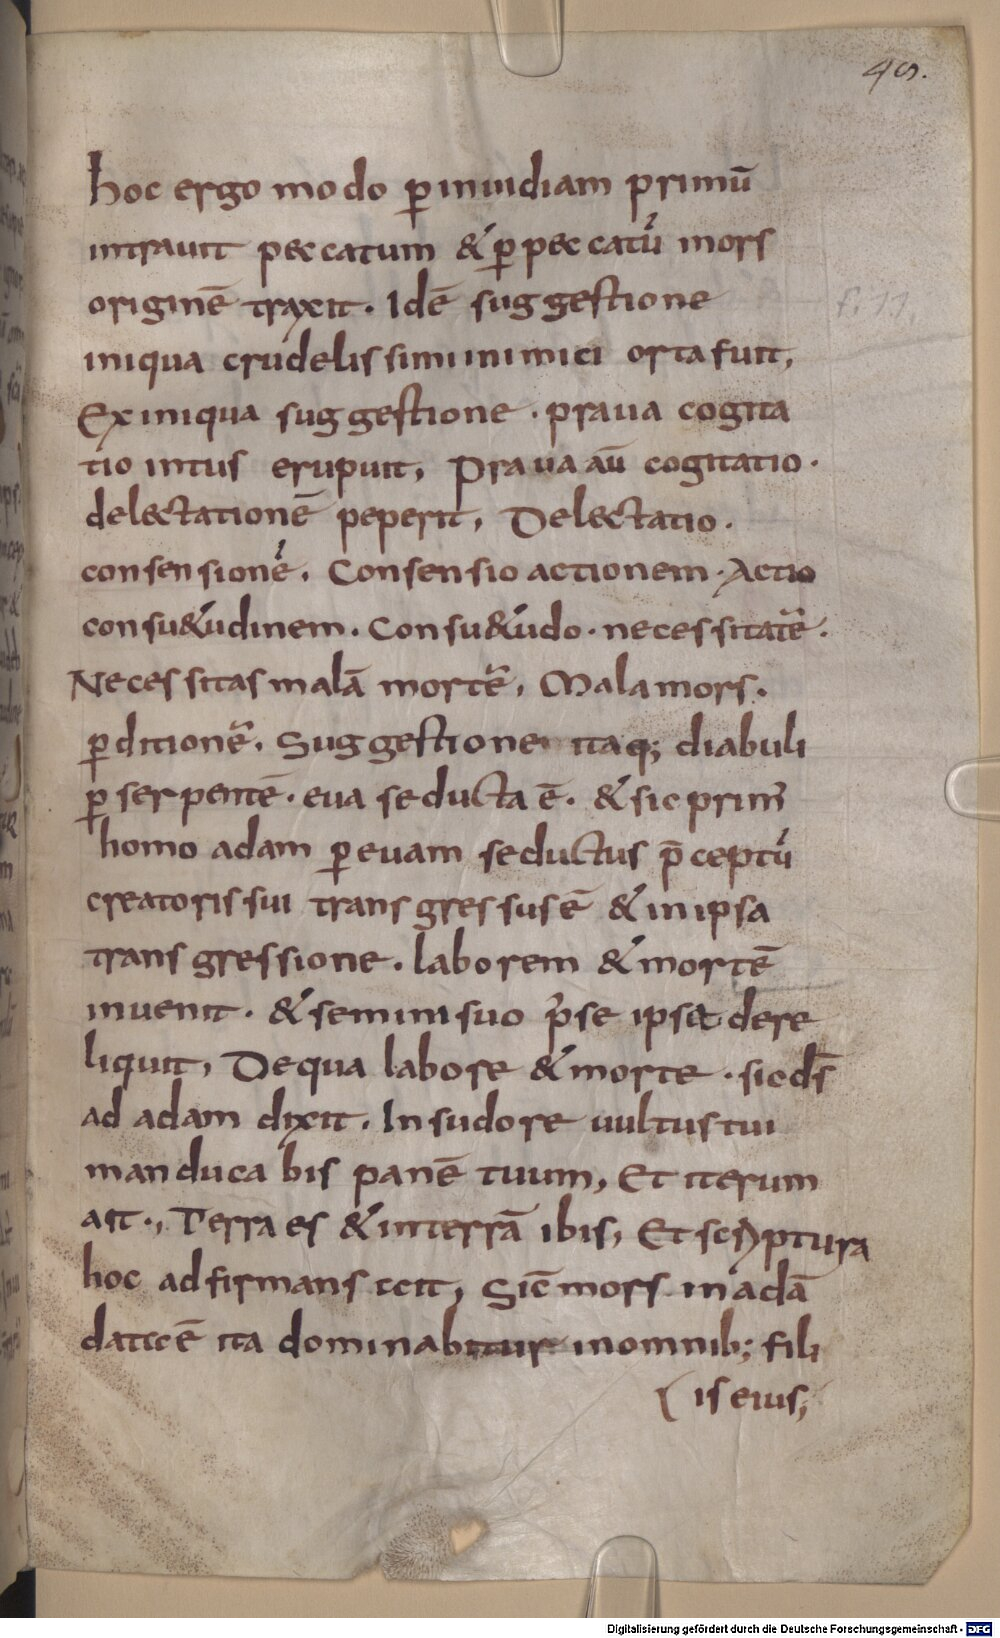 49.
hoc ergo modo ꝑ inuidiam primū
intrauit peccatum & ꝑ peccatū mors
originē traxit. Idē suggestione
iniqua crudelissimi inimici orta fuit,
Ex iniqua suggestione. praua cogita
tio intus erupuit, Praua aū cogitatio.
delectationē peperit, Delectatio.
consensionē. Consensio actionem. Actio
consu&udinem. Consu&udo. necessitatē.
Necessitas malā mortē, Mala mors.
ꝑditionē. Suggestione itaq; diabuli
ꝑ serpentē. eua seducta ē. & sic prim᾿
homo adam ꝑ euam seductus p̄ceptū
creatoris sui transgressus ē & in ipsa
transgressione. laborem & mortē
inuenit. & semini suo p᾿ se ipsa dere
liquit, De qua labore & morte. sic ds̄
ad adam dixit. In sudore uultus tui
manducabis panē tuum, Et iterum
ait., Terra es & in terrā ibis, Et scriptura
hoc adfirmans ccit, Sic̄ mors in adā
data ē ita dominabitur in omnib; fili
is eius,